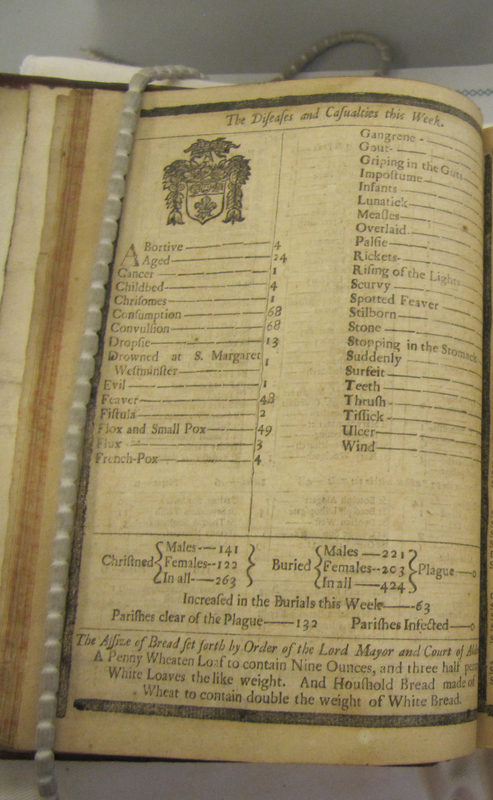 The Diſeaſes and Caſualties this Week.
ABortive 4
Aged 24
Cancer 1
Childbed 4
Chriſomes 1
Conſumption 68
Convulſion 68
Dropſie 13
Drowned at S. Margaret
Weſtminſter 1
Evil 1
Feaver 48
Fiſtula 2
Flox and Small Pox 49
Flux 3
French-Pox 4
Gangrene
Gout
Griping in the Guts
Impoſtume
Infants
Lunatick
Meaſles
Overlaid
Palſie
Rickets
Riſing of the Lights
Scurvy
Spotted Feaver
Stilborn
Stone
Stopping in the Stomach
Suddenly
Surfeit
Teeth
Thruſh
Tiſſick
Ulcer
Wind
Chriſtned { Males—141 Females--122 In all—263 } Buried { Males—221 Females--203 In all—424 } Plague—0
Increaſed in the Burials this Week—63
Pariſhes clear of the Plague—132 Pariſhes Infected—0
The Aſſize of Bread ſet forth by Order of the Lord Mayor and Court of
A Penny Wheaten Loaf to contain Nine Ounces, and three half
White Loaves the like weight. And Houſhold Bread made of
Wheat to contain double the weight of White Bread.